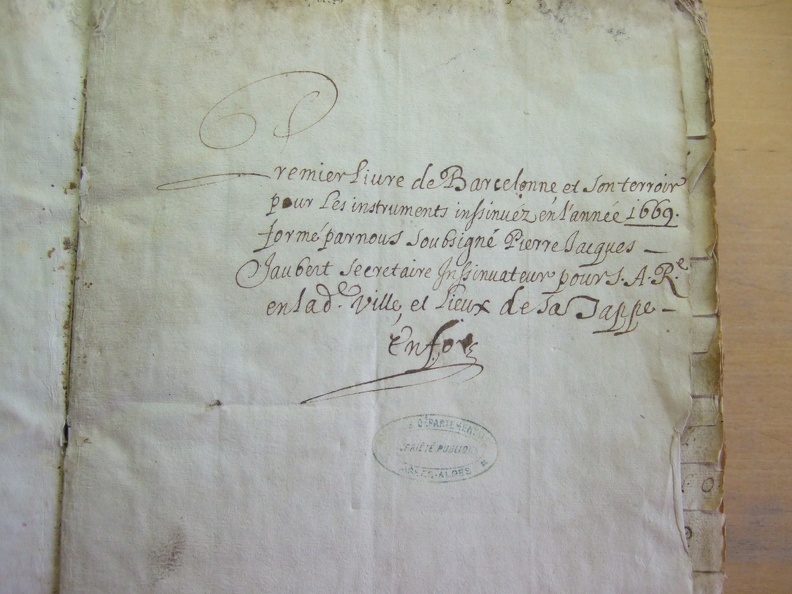 Premier Livre de Barcelonne et son terroir
pour Les instruments inssinuéz en l'année 1669.
formé par nous soubsigné Pierre Jacques
Jaubert secretaire Inssinuateur pour S. A. Re
en lade. ville, et Lieux de sa Tappe
DÉPARTEMENT
PUBLIQUE
ALPES